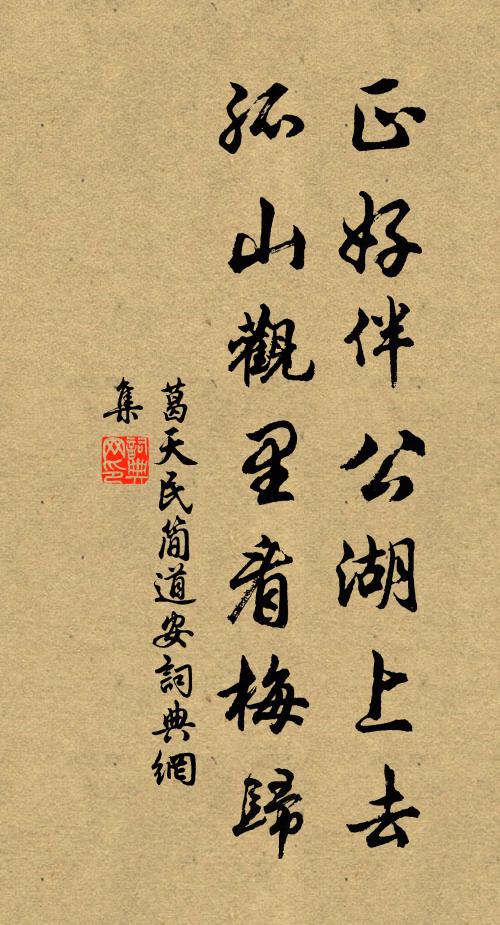 正好伴公湖上去
孤山觀里看梅歸
葛天民簡道安詞典網
集
詞典網印